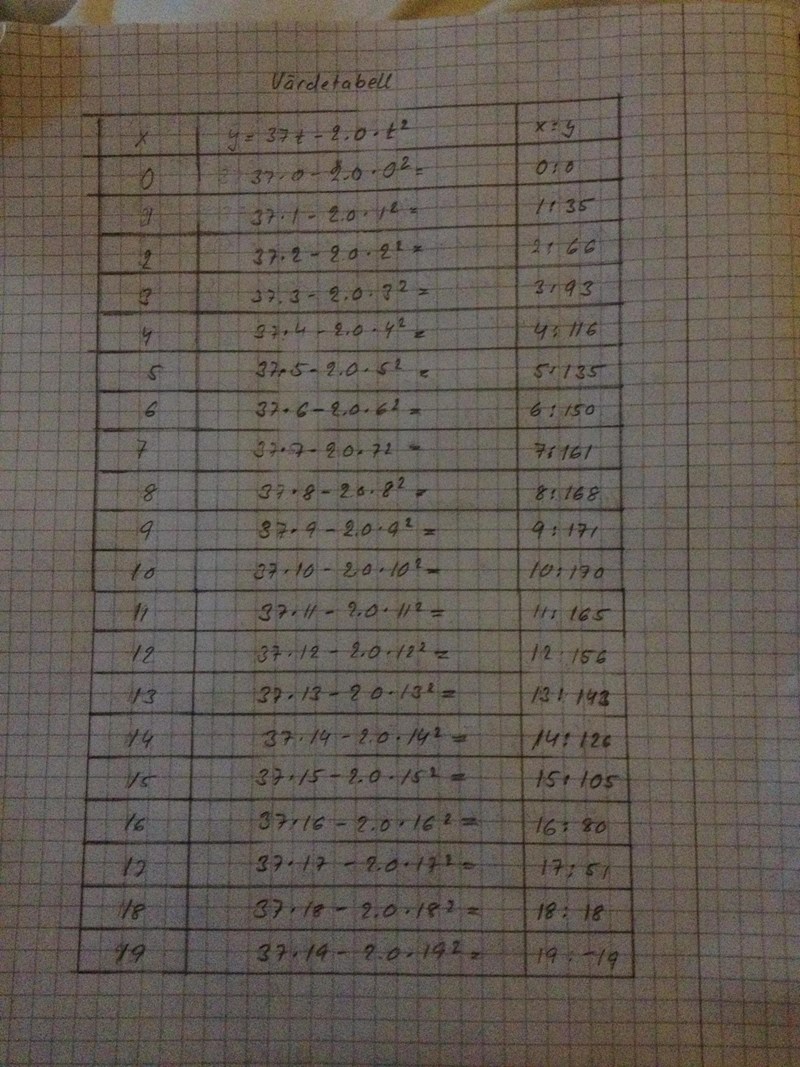 Värdetabell
x y = 37t - 2.0 · t² x:y
0 37·0 - 2.0 · 0² = 0:0
1 37·1 - 2.0 · 1² = 1:35
2 37·2 - 2.0 · 2² = 2:66
3 37·3 - 2.0 · 3² = 3:93
4 37·4 - 2.0 · 4² = 4:116
5 37·5 - 2.0 · 5² = 5:135
6 37·6 - 2.0 · 6² = 6:150
7 37·7 - 2.0 · 7² = 7:161
8 37·8 - 2.0 · 8² = 8:168
9 37·9 - 2.0 · 9² = 9:171
10 37·10 - 2.0 · 10² = 10:170
11 37·11 - 2.0 · 11² = 11:165
12 37·12 - 2.0 · 12² = 12:156
13 37·13 - 2.0 · 13² = 13:143
14 37·14 - 2.0 · 14² = 14:126
15 37·15 - 2.0 · 15² = 15:105
16 37·16 - 2.0 · 16² = 16:80
17 37·17 - 2.0 · 17² = 17:51
18 37·18 - 2.0 · 18² = 18:18
19 37·19 - 2.0 · 19² = 19:-19